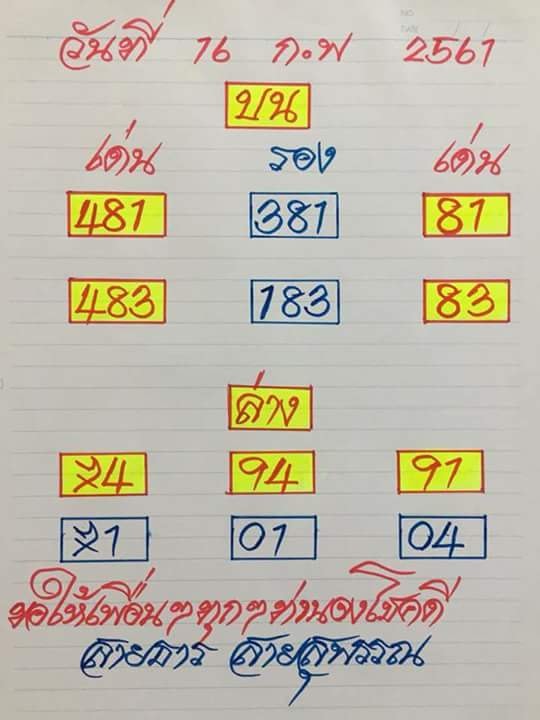 NO
DATE / /
วันที่ 16 ก.พ 2561
บน
เด่น รอง เด่น
481 381 81
483 183 83
ล่าง
94 91
01 04
ขอให้เพื่อนๆทุกๆท่านจงโชคดี
สายธาร สายสุพรรณ